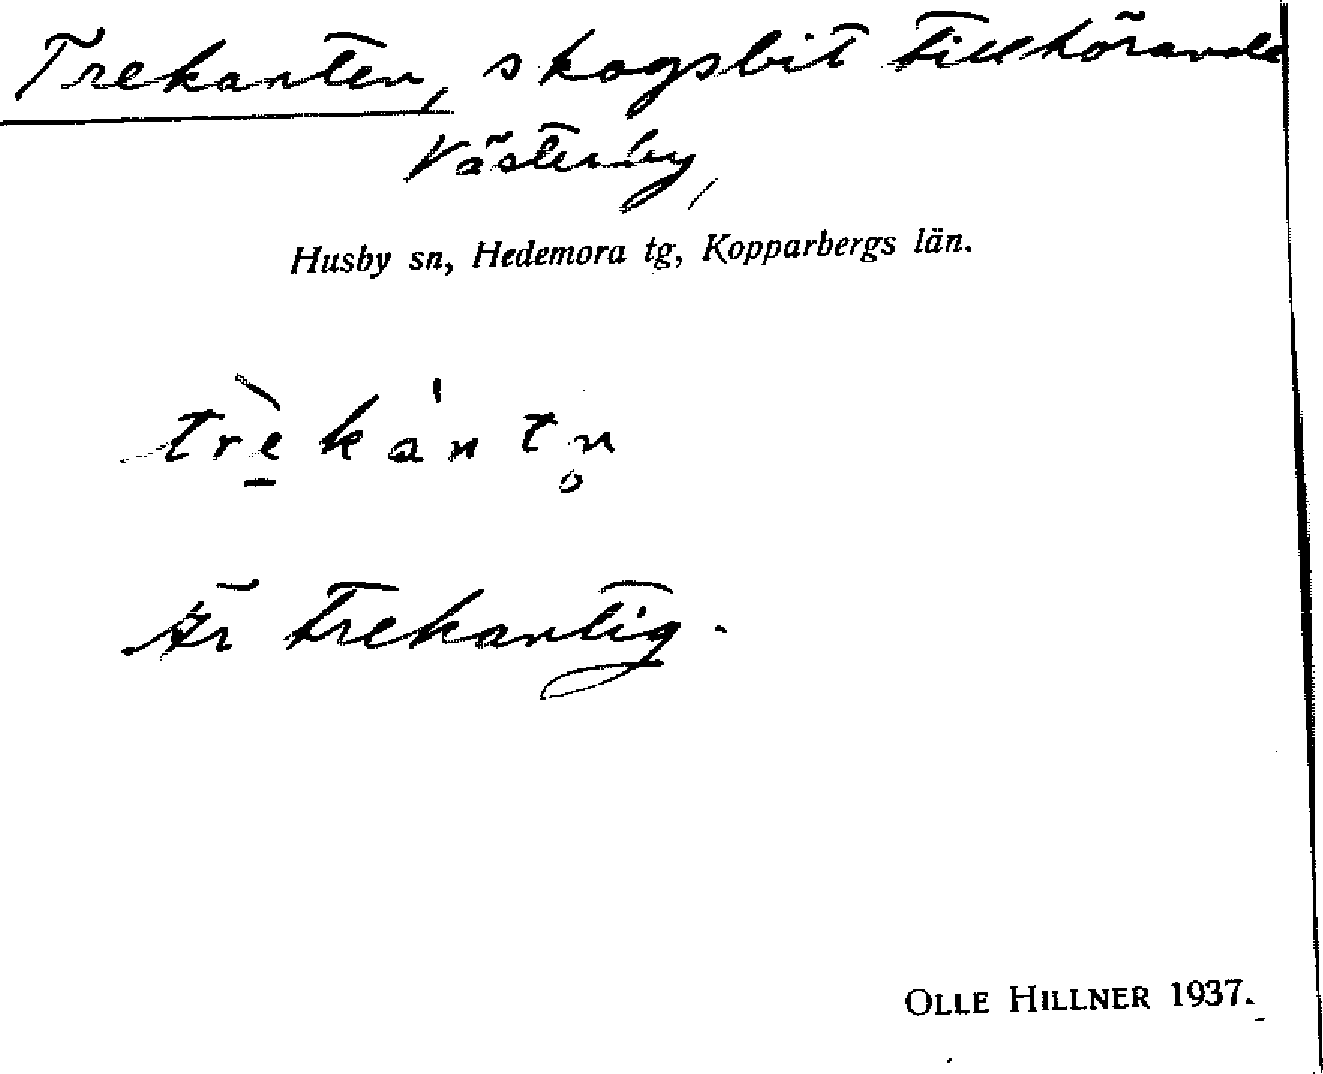 Trekanten, skogsbit tillhörande
Västerby,
Husby sn, Hedemora tg, Kopparbergs län.
trè̱ka̍ntn̥
Är trekantig.
OLLE HILLNER 1937.